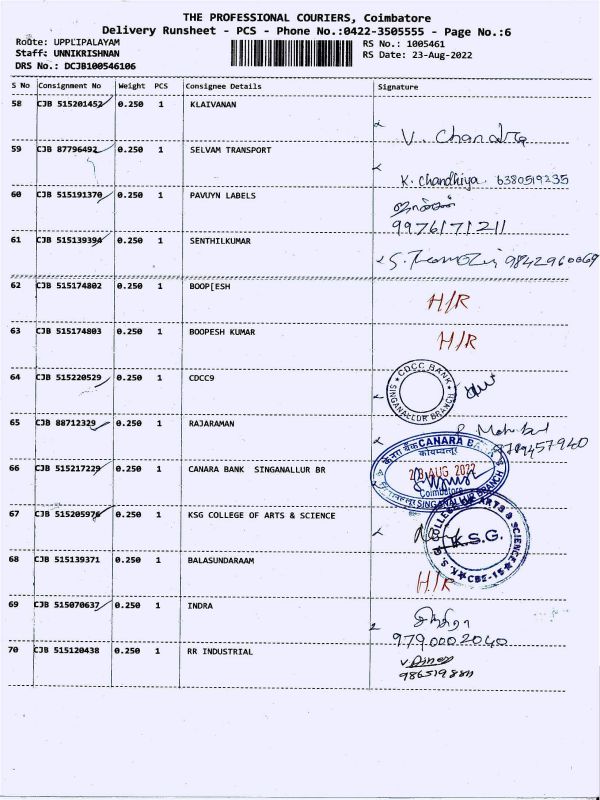 THE PROFESSIONAL COURIERS, Coimbatore
Delivery Runsheet - PCS - Phone No.:0422-3505555 - Page No.:6
Route: UPPLIPALAYAM RS No.: 1005461
Staff: UNNIKRISHNAN RS Date: 23-Aug-2022
DRS No.: DCJB100546106
S No Consignment No Weight PCS Consignee Details Signature
58 CJB 515201452 0.250 1 KLAIVANAN
V. Chandra
59 CJB 87796492 0.250 1 SELVAM TRANSPORT
K. Chandhiya. 6380519235
60 CJB 515191370 0.250 1 PAVUYN LABELS
9976171211
61 CJB 515139394 0.250 1 SENTHILKUMAR
9842960069
62 CJB 515174802 0.250 1 BOOP[ESH
H/R
63 CJB 515174803 0.250 1 BOOPESH KUMAR
H/R
64 CJB 515220529 0.250 1 CDCC9
CDCC BANK
SINGANALLUR BRANCH
65 CJB 88712329 0.250 1 RAJARAMAN
9789457940
66 CJB 515217229 0.250 1 CANARA BANK SINGANALLUR BR
केनरा बैंक CANARA BANK
कोयम्बत्तूर
23 AUG 2022
Coimbatore
SINGANALLUR BRANCH
67 CJB 515205976 0.250 1 KSG COLLEGE OF ARTS & SCIENCE
K.S.G. COLLEGE OF ARTS & SCIENCE
K.S.G.
CBE-15
68 CJB 515139371 0.250 1 BALASUNDARAAM
H/R
69 CJB 515070637 0.250 1 INDRA
இந்திரா
9790002040
70 CJB 515120438 0.250 1 RR INDUSTRIAL